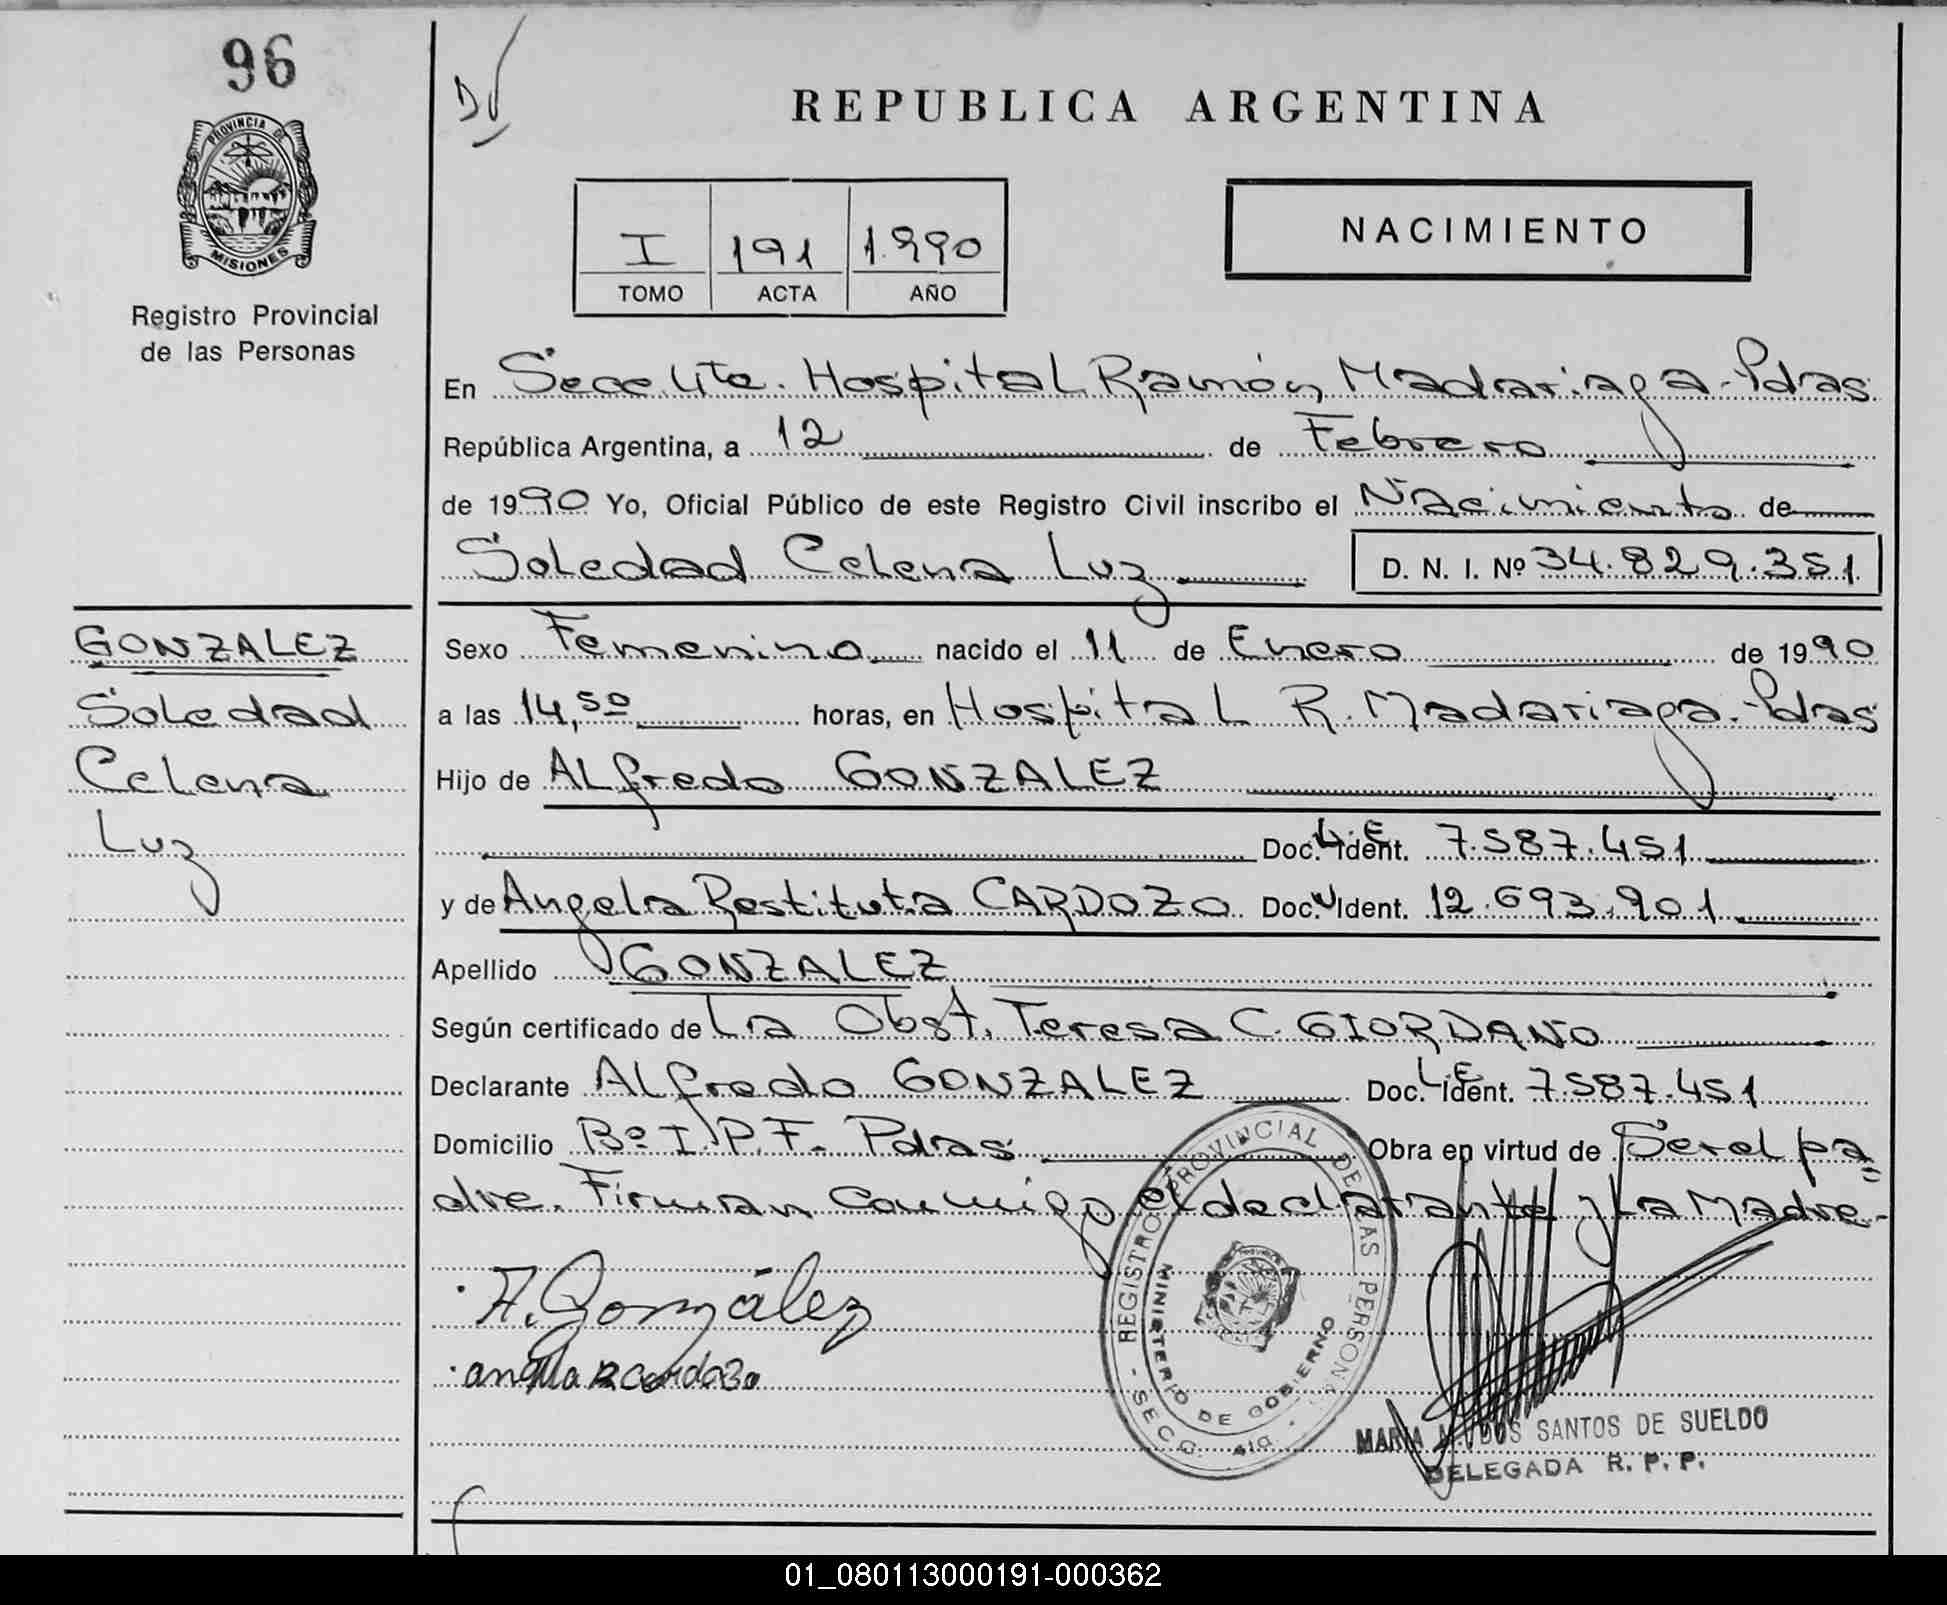 96
PROVINCIA DE
MISIONES
Registro Provincial
de las Personas
REPUBLICA ARGENTINA
I 191 1.990
TOMO ACTA AÑO
NACIMIENTO
En Secc. 4ta. Hospital Ramón Madariaga-Pdas
República Argentina, a 12 de Febrero
de 1990 Yo, Oficial Público de este Registro Civil inscribo el Nacimiento de
Soledad Celena Luz D. N. I. Nº 34.829.351
GONZALEZ
Soledad
Celena
Luz
Sexo Femenino nacido el 11 de Enero de 1990
a las 14,50 horas, en Hospital R. Madariaga-Pdas
Hijo de Alfredo GONZALEZ
Doc. L.E Ident. 7.587.451
y de Angela Restituta CARDOZO Doc. U Ident. 12.693.901
Apellido GONZALEZ
Según certificado de La Obst. Teresa C. GIORDANO
Declarante Alfredo GONZALEZ Doc. L.E Ident. 7.587.451
Domicilio Bº I.P.F. Pdas Obra en virtud de Ser el pa=
dre. Firman conmigo el declarante y La Madre.-
A. González
angela R cardozo
REGISTRO PROVINCIAL DE LAS PERSONAS
MINISTERIO DE GOBIERNO
SECC. 4ta.
MARIA M. DOS SANTOS DE SUELDO
DELEGADA R. P. P.
01_080113000191-000362